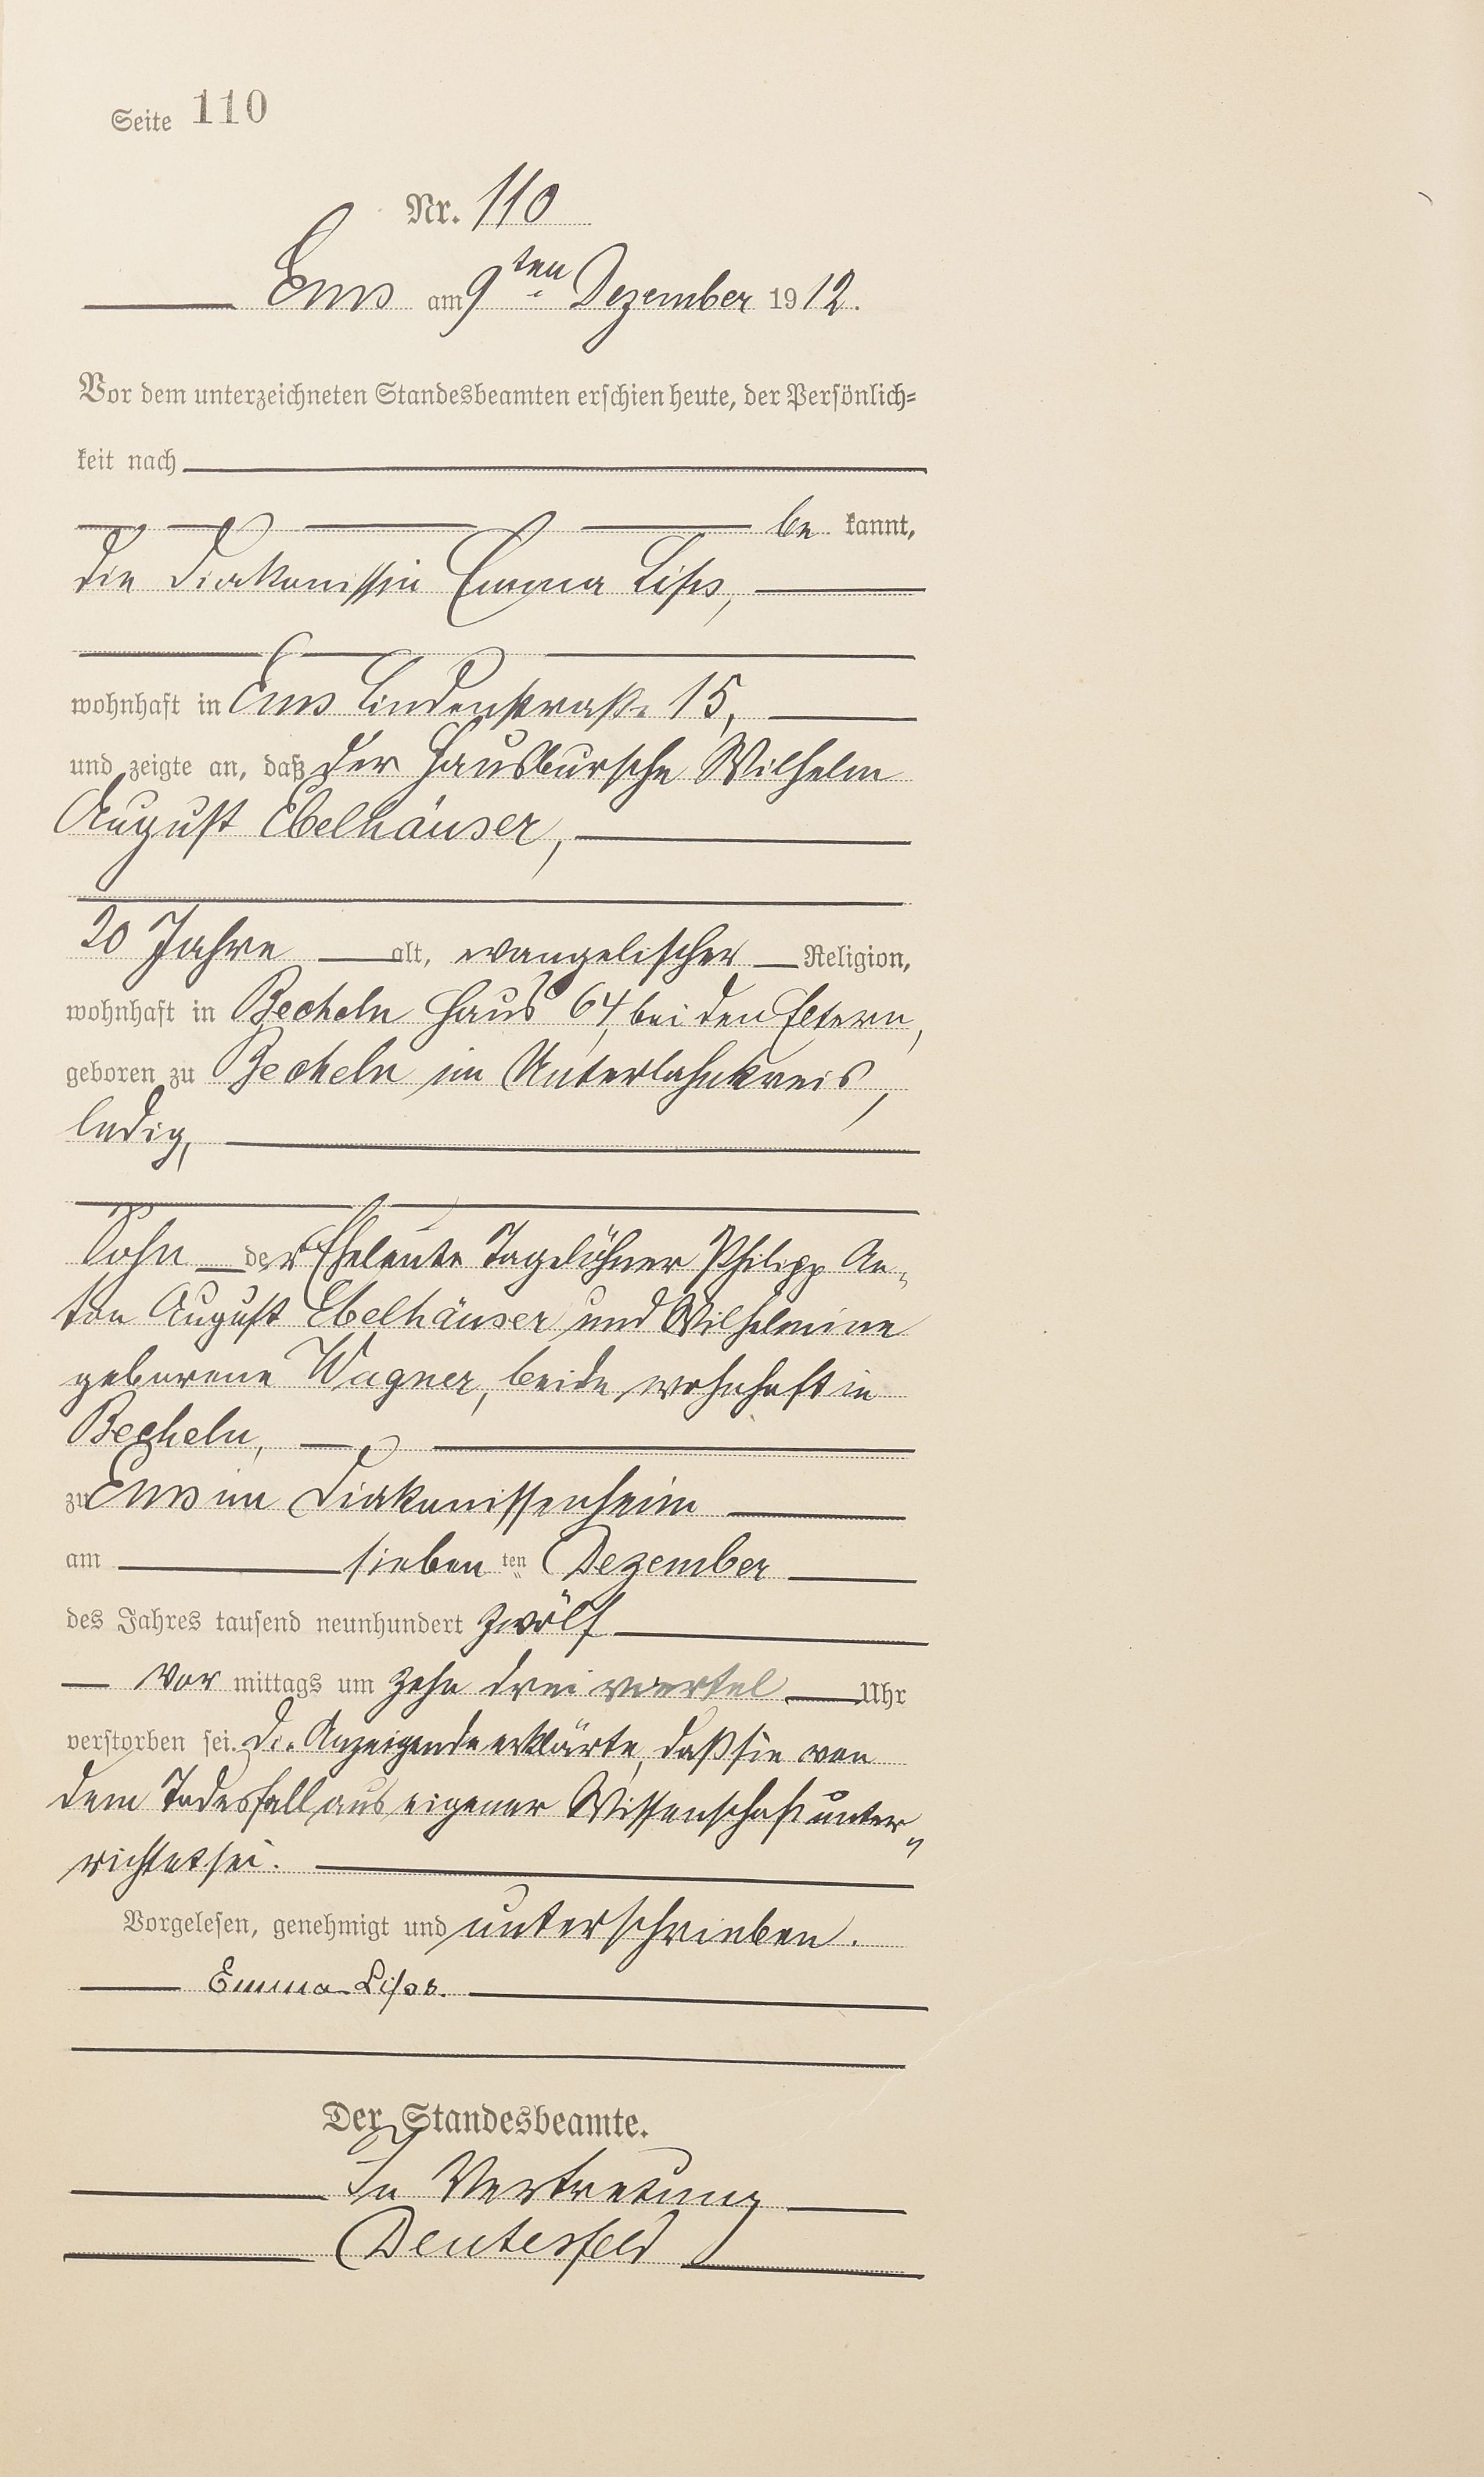 Seite 110
Nr. 110
Ems am 9ten Dezember 1912.
Vor dem unterzeichneten Standesbeamten erschien heute, der Persönlich=
keit nach
be kannt,
die Diakonissin Emma Lips,
wohnhaft in Ems Lindenstraße 15,
und zeigte an, daß der Hausbursche Wilhelm
August Ebelhäuser,
20 Jahre alt, evangelischer Religion,
wohnhaft in Becheln Haus 64, bei den Eltern,
geboren zu Becheln im Unterlahnkreis,
ledig,
Sohn der Eheleute Tagelöhner Philipp An-
ton August Ebelhäuser und Wilhelmine
geborene Wagner, beide wohnhaft in
Becheln,
zu Ems im Diakonissenheim
am sieben ten Dezember
des Jahres tausend neunhundert zwölf
Vor mittags um zehn drei viertel Uhr
verstorben sei. Die Anzeigende erklärte, daß sie von
dem Todesfall aus eigener Wissenschaft unter=
richtet sei.
Vorgelesen, genehmigt und unterschrieben.
Emma Lips.
Der Standesbeamte.
In Vertretung